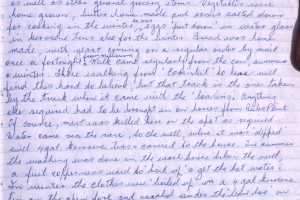 as well as other general grocery items. Vegetables were
home grown, butter home made and excess salted down
for eating in the winter, eggs put down in water glass
in kerosene tins also for the winter. Bread was home
made, with yeast coming on a regular order by mail
once a fortnight. Milk came regularly from the cow, summer
& winter. Those walking from to
find this hard to believe, but that track is the one taken
by the truck when it came with the loading. Anything
else required had to be brought in on horses from
Of course, meat was killed here on the spot as required
Water came via the race, to the well, where it was dipped
with 4 gal. kerosene tins & carried to the house. In summer
the washing was done in the wash house down the well,
a fuel copper was used to boil up & get the hot water,
In winter the clothes were boiled up in a 4 gal kerosene
tin on the open fire and washed under the lean to on